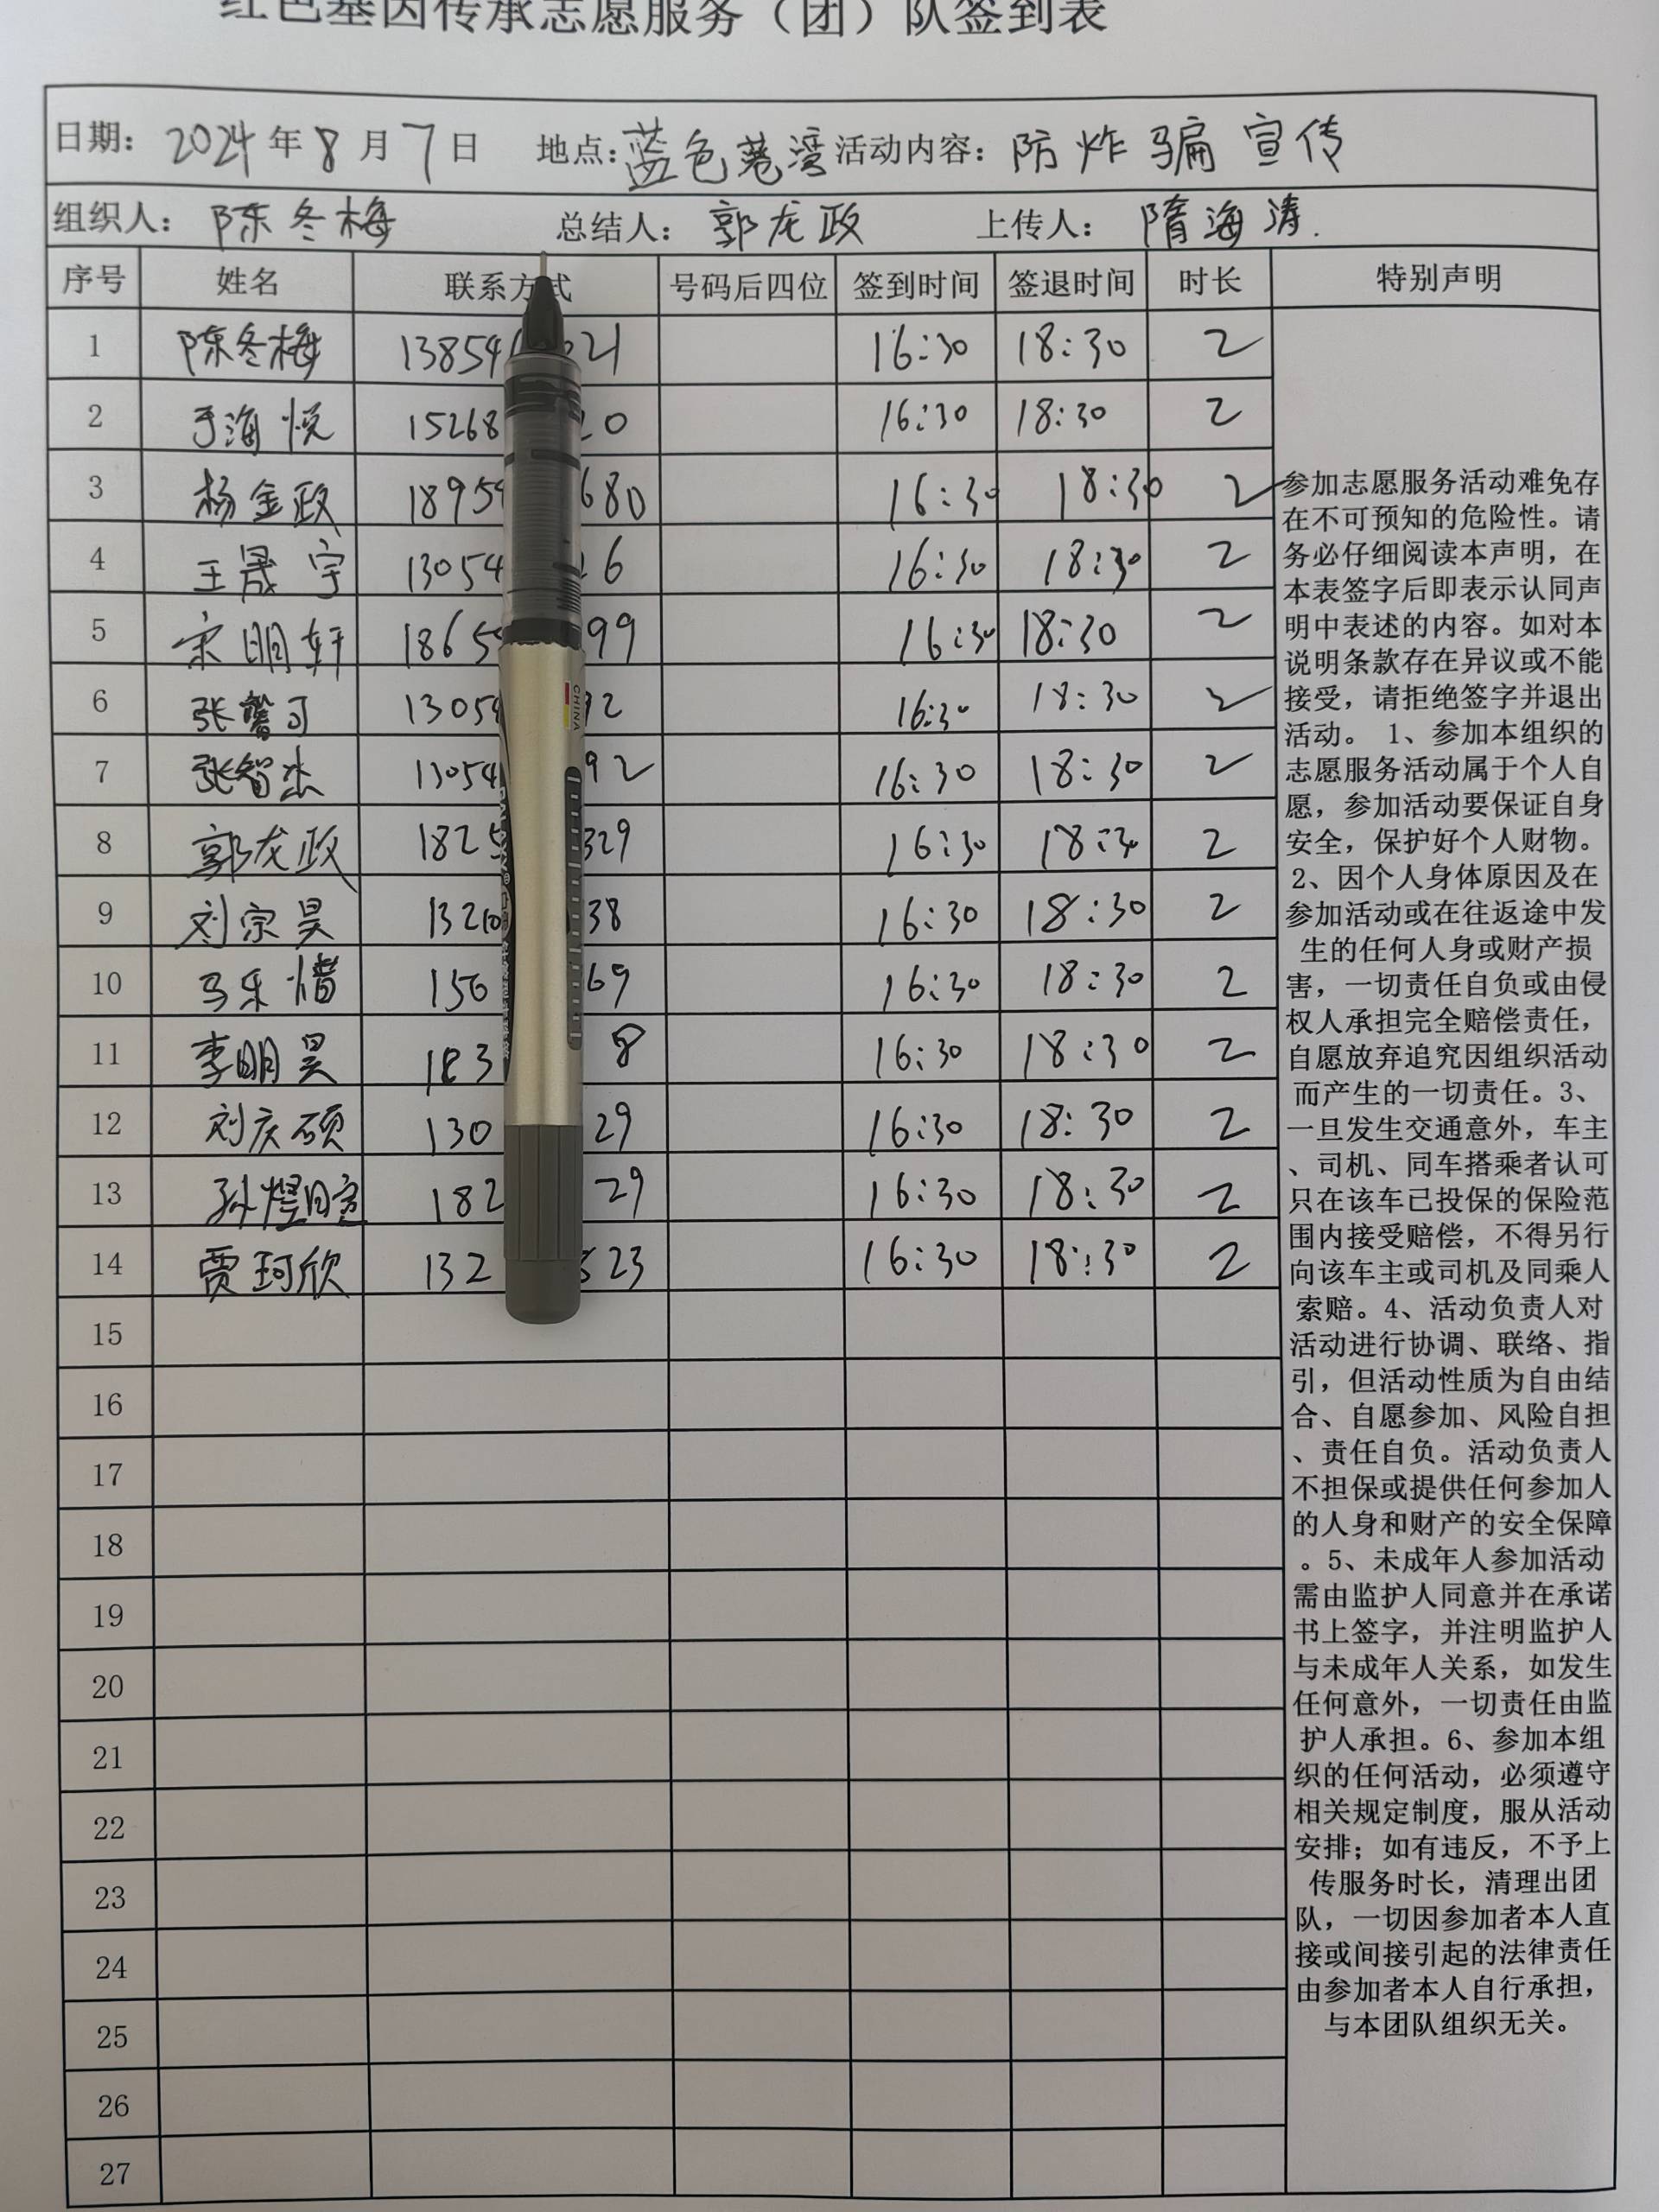 红色基因传承志愿服务（团）队签到表
日期：2024年8月7日 地点：蓝色港湾 活动内容：防炸骗宣传
组织人：陈冬梅 总结人：郭龙政 上传人：隋海涛.
序号 姓名 联系方式 号码后四位 签到时间 签退时间 时长 特别声明
1 陈冬梅 13854 21 16:30 18:30 2
2 于海悦 15268 20 16:30 18:30 2
3 杨金政 18954 680 16:30 18:30 2
4 王晟宇 13054 26 16:30 18:30 2
5 宋明轩 1865 99 16:30 18:30 2
6 张 1305 92 16:30 18:30 2
7 张智杰 13054 92 16:30 18:30 2
8 郭龙政 1825 329 16:30 18:30 2
9 刘宗昊 13210 38 16:30 18:30 2
10 马乐惜 150 69 16:30 18:30 2
11 李明昊 183 8 16:30 18:30 2
12 刘庆硕 130 29 16:30 18:30 2
13 孙煜暄 182 29 16:30 18:30 2
14 贾珂欣 132 523 16:30 18:30 2
15
16
17
18
19
20
21
22
23
24
25
26
27
参加志愿服务活动难免存
在不可预知的危险性。请
务必仔细阅读本声明，在
本表签字后即表示认同声
明中表述的内容。如对本
说明条款存在异议或不能
接受，请拒绝签字并退出
活动。 1、参加本组织的
志愿服务活动属于个人自
愿，参加活动要保证自身
安全，保护好个人财物。
2、因个人身体原因及在
参加活动或在往返途中发
生的任何人身或财产损
害，一切责任自负或由侵
权人承担完全赔偿责任，
自愿放弃追究因组织活动
而产生的一切责任。3、
一旦发生交通意外，车主
、司机、同车搭乘者认可
只在该车已投保的保险范
围内接受赔偿，不得另行
向该车主或司机及同乘人
索赔。4、活动负责人对
活动进行协调、联络、指
引，但活动性质为自由结
合、自愿参加、风险自担
、责任自负。活动负责人
不担保或提供任何参加人
的人身和财产的安全保障
。5、未成年人参加活动
需由监护人同意并在承诺
书上签字，并注明监护人
与未成年人关系，如发生
任何意外，一切责任由监
护人承担。6、参加本组
织的任何活动，必须遵守
相关规定制度，服从活动
安排；如有违反，不予上
传服务时长，清理出团
队，一切因参加者本人直
接或间接引起的法律责任
由参加者本人自行承担，
与本团队组织无关。
CHINA